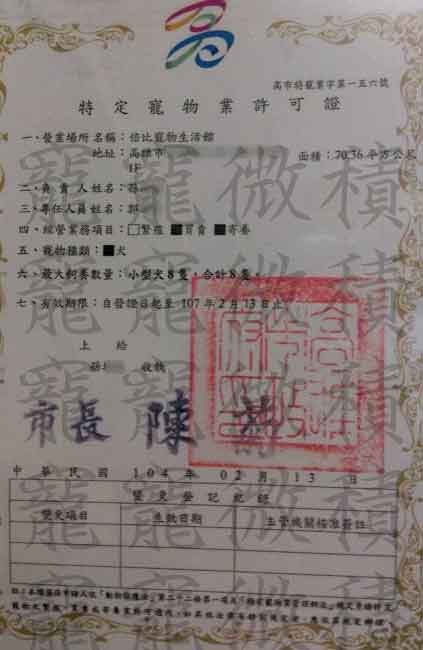 高市特寵業字第一五六號
特定寵物業許可證
一、營業場所名稱：倍比寵物生活館
地址：高雄市
面積：70.36平方公尺
1F
二、負責人姓名：孫
三、專任人員姓名：郭
四、經營業務項目：□繁殖 ■買賣 ■寄養
五、寵物種類：■犬
六、最大飼養數量：小型犬8隻，合計8隻。
七、有效期限：自發證日起至107年2月13日止
上給
孫 收執
市長 陳菊
中華民國 104年 02月 13日
變更登記紀錄
變更項目 生效日期 主管機關核准簽註
寵寵微積
寵寵微積
寵寵微積
寵寵微積